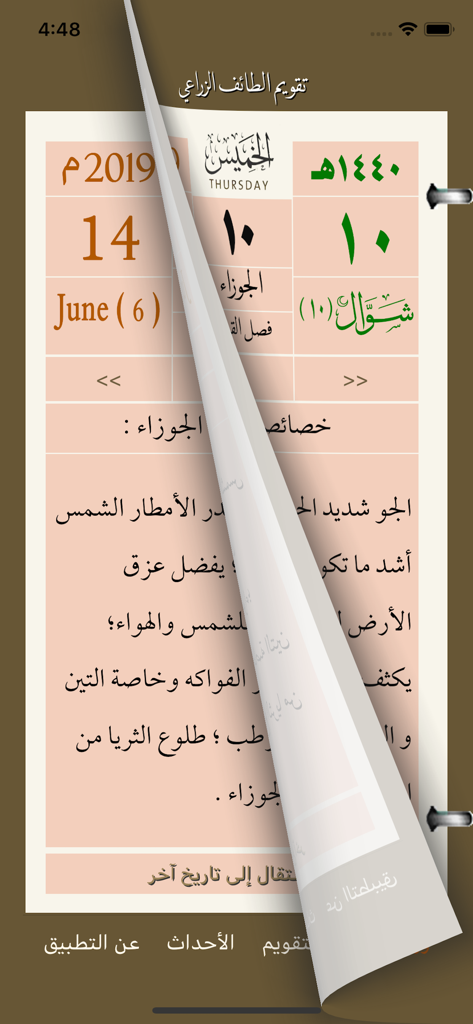 4:48
تقويم الطائف الزراعي
١٤٤٠هـ
الخميس
THURSDAY
2019 م
١٠
١٠
14
شوال (١٠)
الجوزاء
June ( 6 )
فصل
>>
<<
الجوزاء :
الجو شديد الأمطار الشمس
أشد ما يفضل عزق
الأرض للشمس والهواء؛
الفواكه وخاصة التين
و ؛ طلوع الثريا من
الجوزاء .
إلى تاريخ آخر
الأحداث
عن التطبيق